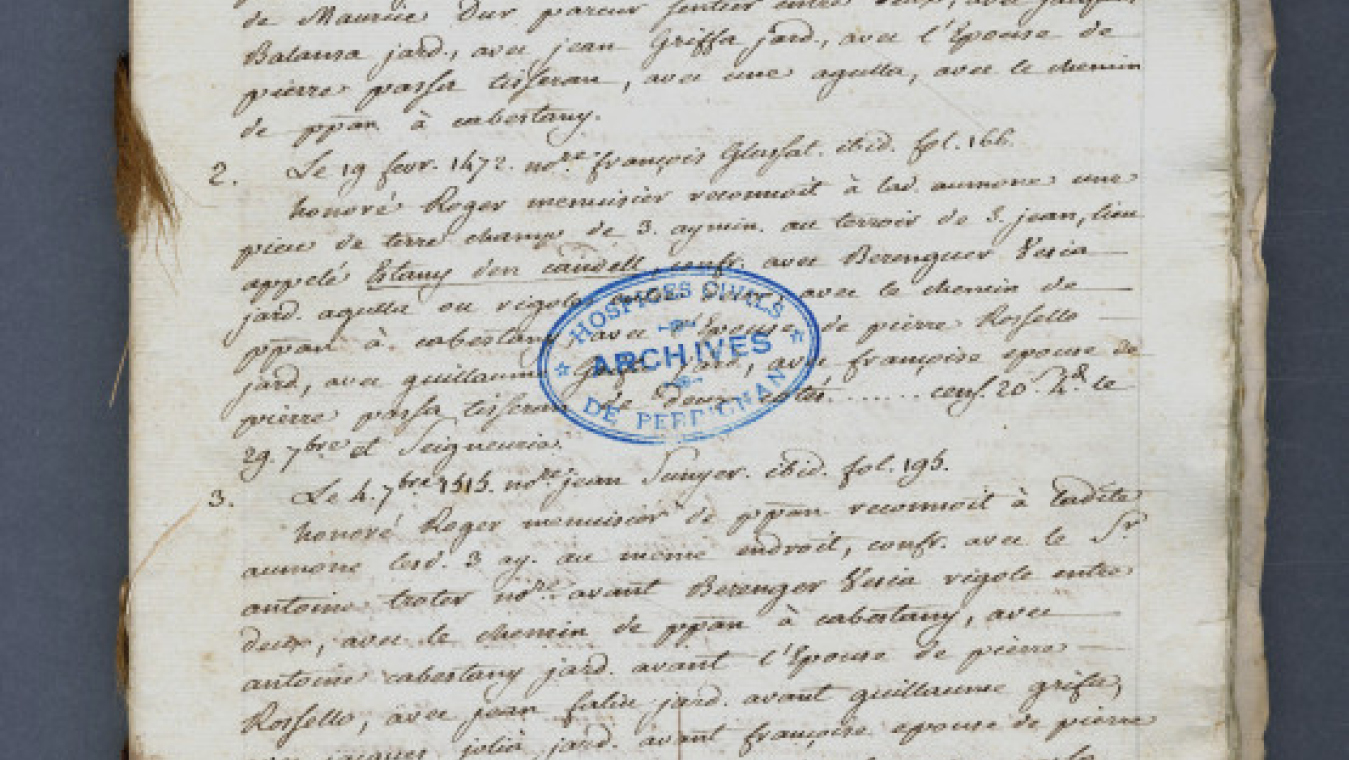 de Maurice Dur pareur sentier entre deux, avec jacques
Balansa jard., avec jean Griffa jard., avec l'Epouse de
pierre passa tisseran, avec une agulla, avec le chemin
de ppan à cabestany.
2. Le 19 fevr. 1472. nore. françois Glassat. ibid. fol. 166.
honoré Roger menuisier reconnoit à lad. aumone une
piece de terre champ de 3. aymin. au terroir de S. jean, lieu
appelé Estany d'en caudell, confr. avec Berenguer Vesia
jard. agulla ou rigole entre deux, avec le chemin de
ppan à cabestany, avec l'Epouse de pierre Rossello
jard, avec guillaume jard, avec françoise epouse de
pierre passa tisseran de deux cotés........ cens. 20. le
29. 7bre et Seigneurie.
HOSPICES CIVILS
ARCHIVES
DE PERPIGNAN
3. Le 4. 7bre 1515. nore jean Sunyer. ibid. fol. 195.
honoré Roger menuisier de ppan reconnoit à ladite
aumone lesd. 3 ay. au meme endroit, confr. avec le Sr
antoine troter nore. avant Berenger Vesia rigole entre
deux, avec le chemin de ppan à cabestany, avec
antoine cabestany jard. avant l'Epouse de pierre
Rossello, avec jean jard. avant guillaume grifa,
avec jacques jolia jard. avant françoise epouse de pierre